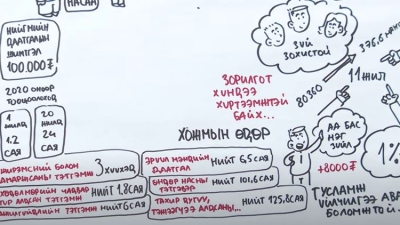 НАСАН
НИЙГМИЙН
ДААТГАЛЫН
ШИМТГЭЛ
100.000₮
2020 ОНООР
ТООЦООЛОХОД
1 ЖИЛД 1.2 САЯ
20 ЖИЛД 24 САЯ
ЗҮЙ
ЗОХИСТОЙ
ЗОРИЛГОТ
ХҮНДЭЭ
ХҮРТЭЭМЖТЭЙ
БАЙХ...
80360
376.6
11 ЖИЛ
ХОЖМЫН ӨДӨР
ЖИРЭМСНИЙ БОЛОН
АМАРЖСАНЫ ТЭТГЭМЖ 3 ХҮҮХЭД
ХӨДӨЛМӨРИЙН ЧАДВАР
ТҮР АЛДСАН ТЭТГЭМЖ НИЙТ 1,8 САЯ
АЖИЛГҮЙДЛИЙН ТЭТГЭМЖ НИЙТ 6 САЯ
ЭРҮҮЛ МЭНДИЙН
ДААТГАЛ НИЙТ 65 САЯ
ӨНДӨР НАСНЫ
ТЭТГЭВЭР НИЙТ 101,6 САЯ
ТАХИР ДУТУУ,
ТЭЖЭЭГЧЭЭ АЛДСАНЫ... НИЙТ 125,8 САЯ
АА БАС
НЭГ
ЗҮЙЛ
+8000₮
1%
ТУСЛАМЖ
ҮЙЛЧИЛГЭЭ АВА
БОЛОМЖТОЙ...